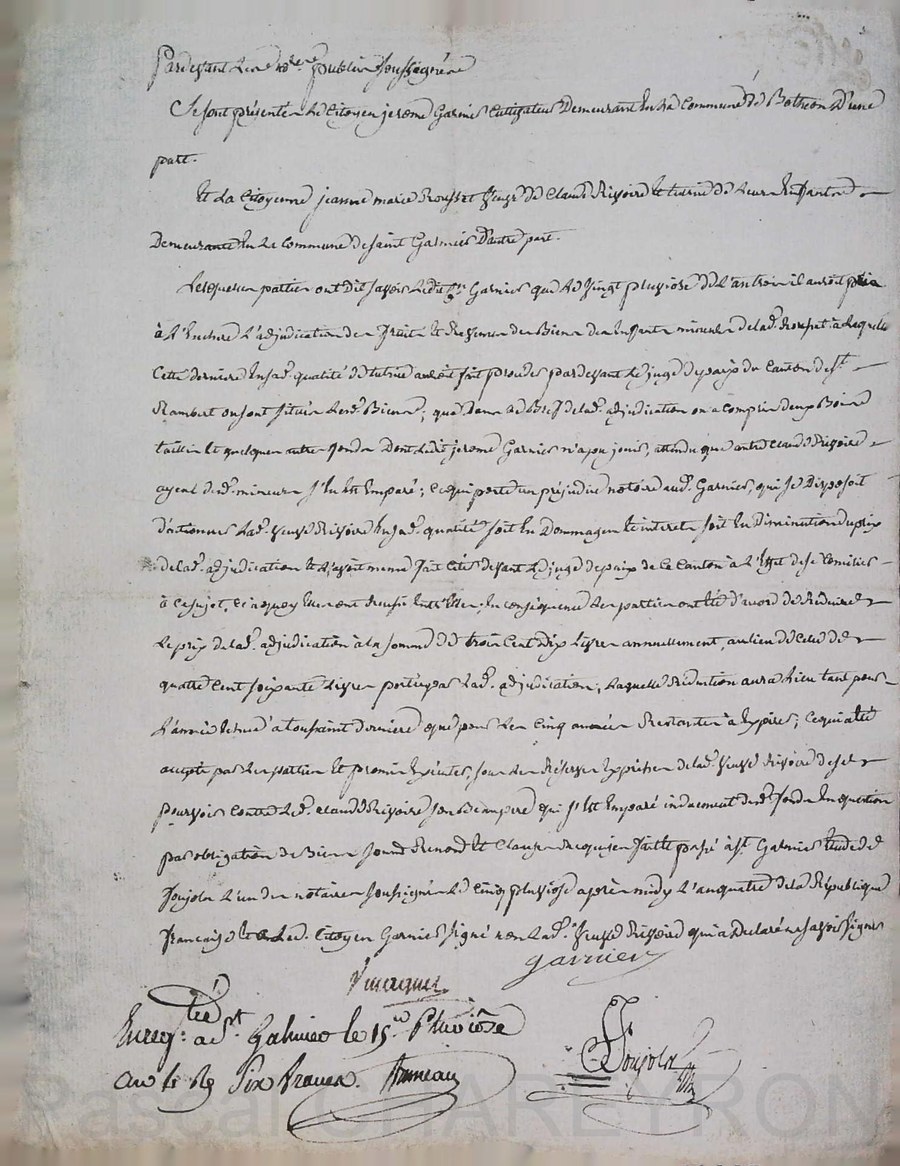 Pardevant les not.res publics soussignés
Se sont présentés le Citoyen jerome Garnier Cultivateur Demeurant en la Commune de Bothéon d'une
part.
Et La Citoyenne jeanne marie Rousset veuve de Claude Rivoire et tutrice de Leurs Enfants
Demeurante en la Commune de saint Galmier d'autre part.
Lesquelles parties ont dit savoir Ledit Cen Garnier que le vingt pluviose de L'an trois il auroit pris
à L'Enchere L'adjudication des fruits et Revenus des Biens des Enfants mineurs de lad. Rousset à Laquelle
Cette derniere en sad. qualité de tutrice auroit fait proceder pardevant Le juge de paix du Canton de St
Rambert ou sont situés Lesd. Biens; que dans le Bref de lad. adjudication on a compris deux Boires
taillis et quelques autres fonds Dont Ledit jerome Garnier n'a pu jouir, attendu que autre Claude Rivoire
ayeul desd. mineurs s'en est Emparé; Ce qui porte un préjudice notoire aud. Garnier, qui se Disposoit
d'actionner Lad. veuve Rivoire en sad. qualité soit en Dommages et interets soit en Diminution du prix
de lad. adjudication et L'ayant meme fait citer devant Le juge de paix de ce Canton à L'Effet de se Concilier
à ce sujet, en Conséquence Les parties ont été d'accord de Réduire
Le prix de lad. adjudication à la somme de trois Cent dix Livres annuellement, au lieu de Celui de
quatre Cent soixante Livres porté par Lad. adjudication; Laquelle Réduction aura Lieu tant pour
L'année échue à la toussaint derniere que pour Les Cinq années Restantes à Expirer; Ce qui a été
accepté par Les parties et promis Exécuter, sous Les Réserves Expresses de lad. veuve Rivoire de se
pourvoir Contre Led. Claude Rivoire son Beaupere qui s'est Emparé induement desd. fonds en question
par obligation de Biens soumis Renonc. et Clauses Requises fait et passé à St Galmier Etude de
Poujolx L'un des notaires soussignés Le Cinq pluviose après midy L'an quatre de la République
française et a Led. Citoyen Garnier signé non Lad. veuve Rivoire qui a Declaré ne savoir signer
garnier
Enregistré à St Galmier le 15 Pluviôse
an 4 Six francs.
Poujolx
Pascal CHAREYRON